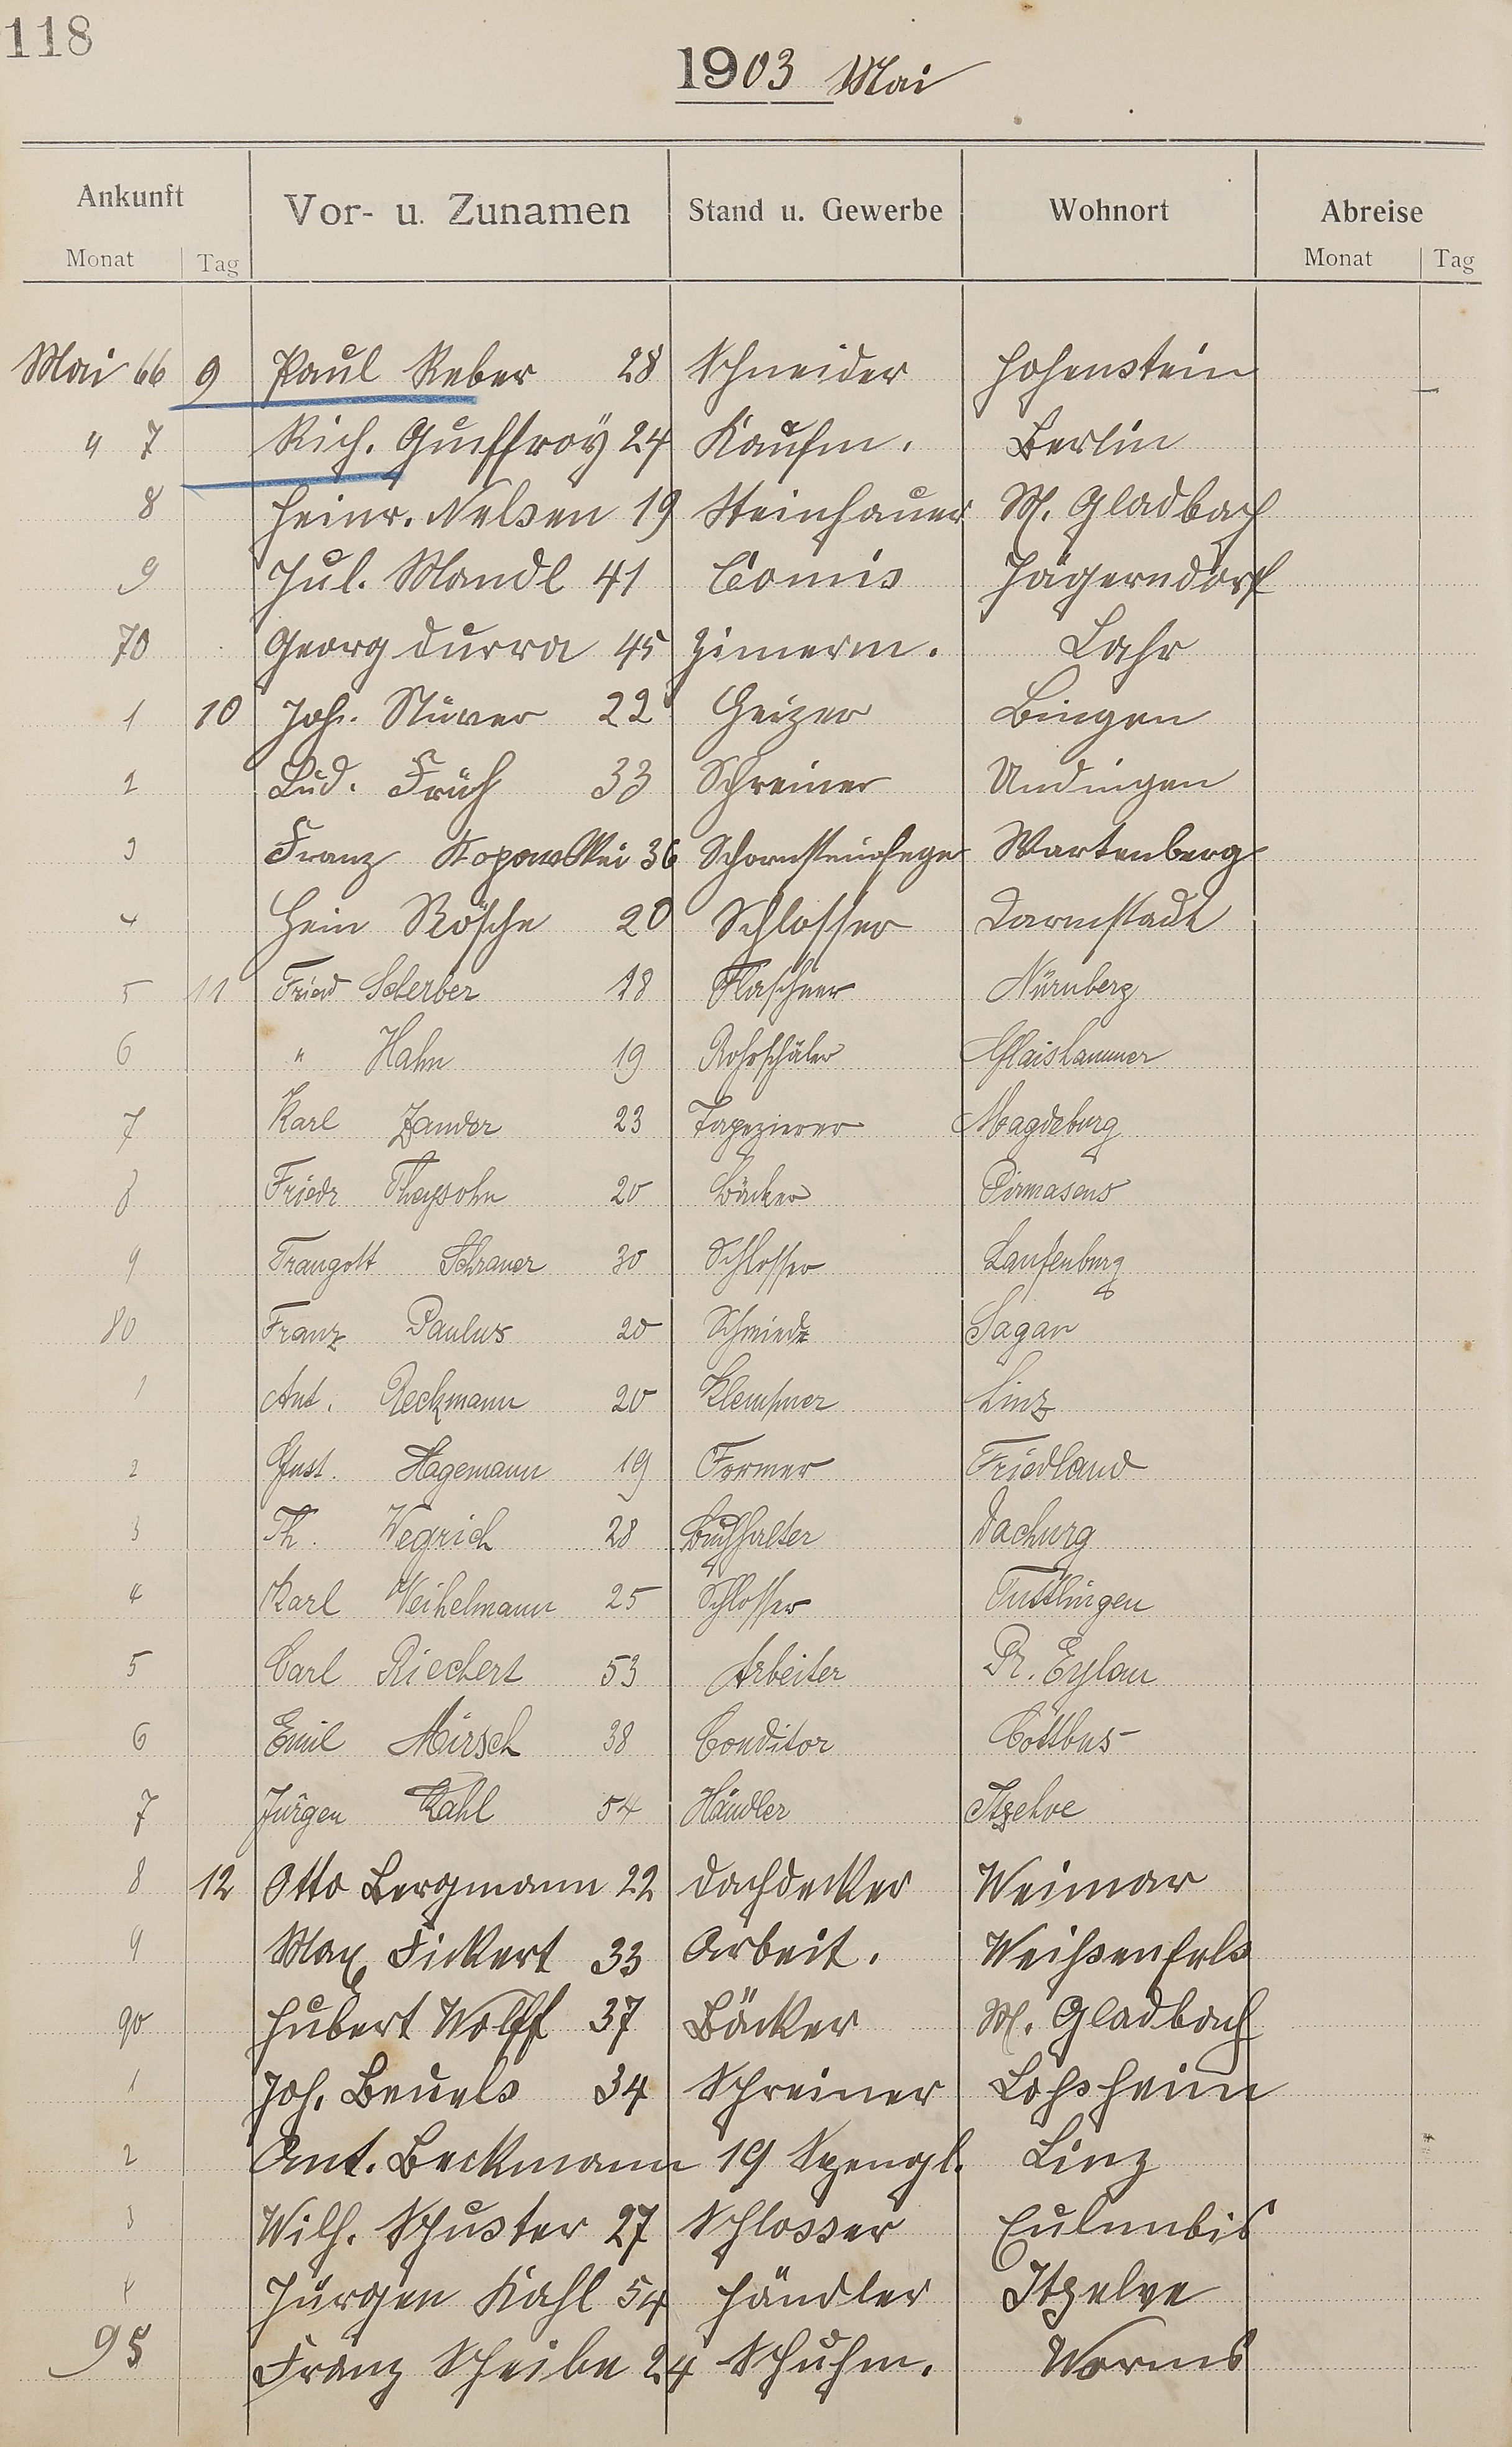 118
1903 Mai
Ankunft Vor- u. Zunamen Stand u. Gewerbe Wohnort Abreise
Monat Tag Monat Tag
Mai 66 9 Paul Reber 28 Schneider Hohenstein
" 7 Rich. Gueffroÿ 24 Kaufm. Berlin
8 Heinr. Nelsen 19 Steinhauer M. Gladbach
9 Jul. Mandl 41 Comis Jägerndorf
70 Georg Durra 45 Zimerm. Lahr
1 10 Joh. Stüver 22 Heizer Bingen
2 Lud. Früh 33 Schreiner Undingen
3 Franz 36 Schornsteinfeger Wartenberg
4 Hein Rösche 20 Schlosser Darmstadt
5 11 Fried Scherber 18 Flaschner Nürnberg
6 " Hahn 19 Rohrschäler Glaishammer
7 Karl Zander 23 Tapezierer Magdeburg
8 Friedr Theysohn 20 Bäcker Pirmasens
9 Traugott Schraner 30 Schlosser Laufenburg
80 Franz Paulus 20 Schmiede Sagan
1 Ant. Beckmann 20 Klempner Linz
2 Gust. Hagemann 19 Former Friedland
3 Th. Wegrich 28 Buchhalter Dachwig
4 Karl Weihelmann 25 Schlosser Tuttlingen
5 Carl Riechert 53 Arbeiter Pr. Eylau
6 Emil Mirsch 38 Conditor Cottbus
7 Jürgen Kahl 54 Händler Itzehoe
8 12 Otto Bergmann 22 Dachdecker Weimar
9 Max Fickert 33 Arbeit. Weißenfels
90 Hubert Wolff 37 Bäcker M. Gladbach
1 Joh. Beuels 34 Schreiner Loßheim
2 Ant. Beckmann 19 Spengl. Linz
3 Wilh. Schuster 27 Schlosser Eulenbis
4 Jürgen Kahl 54 Händler Itzelve
95 Franz Scheibe 24 Schuhm. Worms